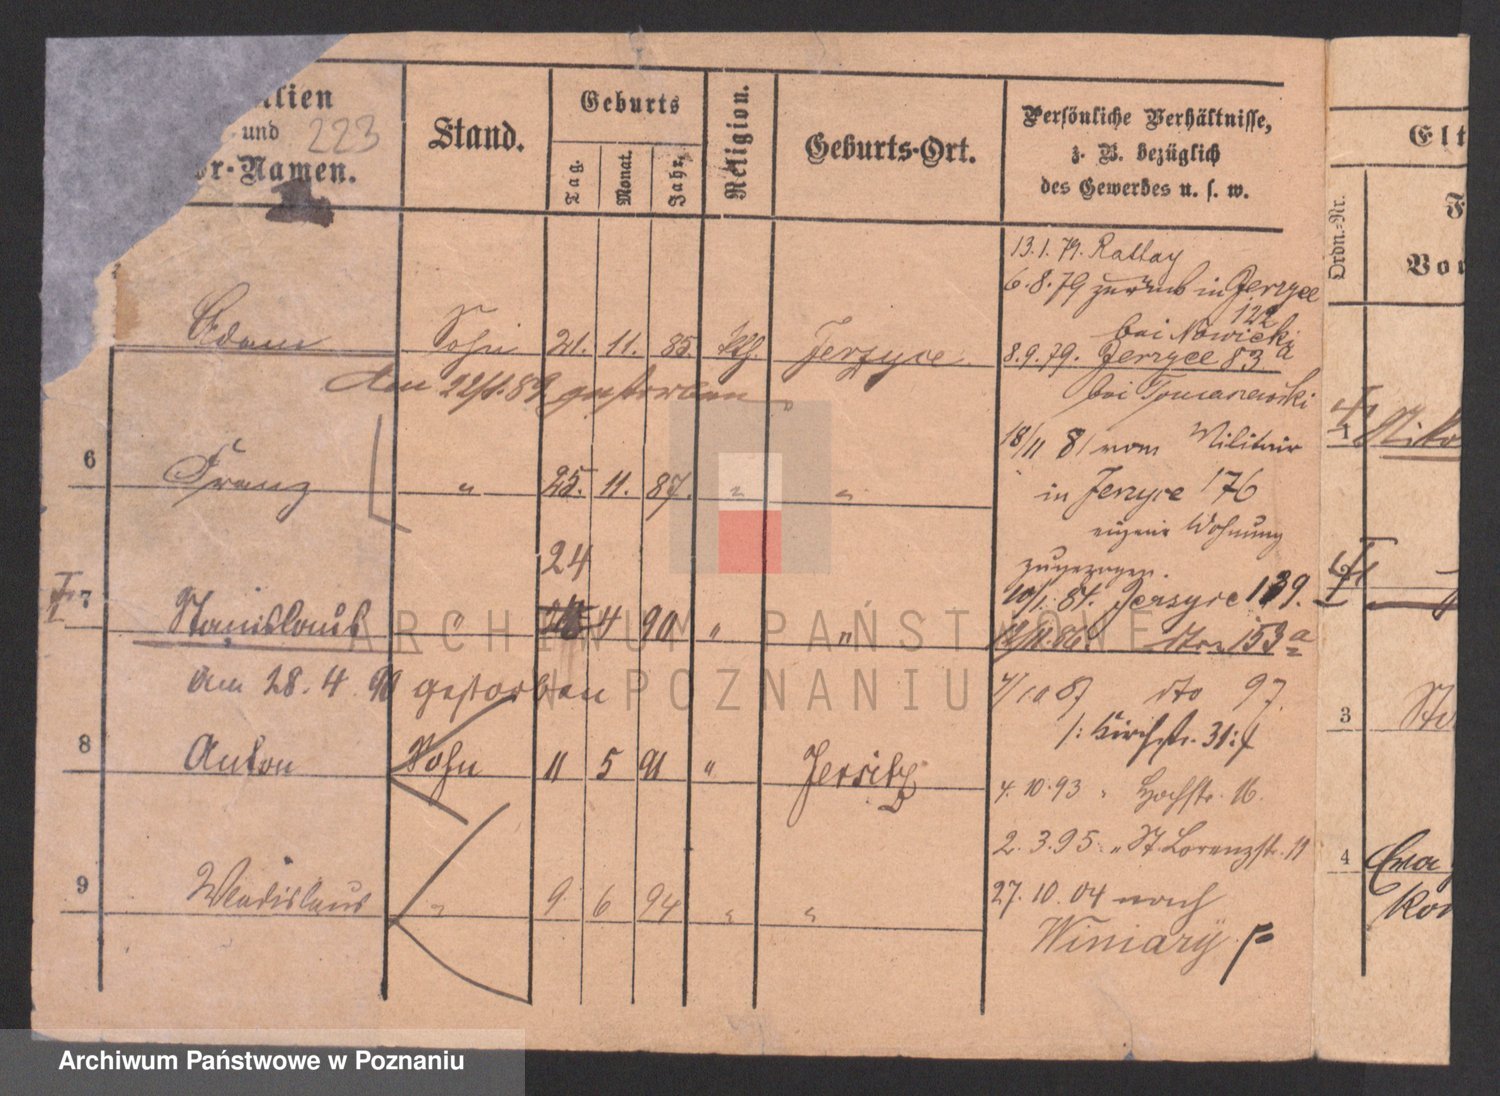 ilien
und 223
or-Namen.
Stand.
Geburts
Tag.
Monat.
Jahr.
Religion.
Geburts-Ort.
Persönliche Verhältnisse,
z. B. bezüglich
des Gewerbes u. s. w.
Elt
Ordn.-Nr.
F
Vor
13.1.79. Rattay
6.8.79 zurück in Jerzyce
122
bei Nowicki
Adam Sohn 21. 11. 85. kth. Jerzyce
8.9.79. Jerzyce 83a
am 22/1.89 gestorben
bei Tomaszewski
18/11 81 vom Militair
6 Franz " 25. 11. 87. " "
in Jerzyce 176
eigene Wohnung
zugezogen.
24
7 Stanislaus " 4 90 " "
10/1.84. Jerzyce 139.
153a
am 28.4.90 gestorben
4/10 87 dto 97.
/: Kirchstr. 31 :/
8 Anton Sohn 11 5 91 " Jersitz
4.10.93 " Hochstr. 16.
2.3.95 " St. Lorenzstr. 11
9 Wladislaus " 9 6 94 " "
27.10.04 nach
Winiary
1 Niko
3 St
4
Kon
ARCHIWUM PAŃSTWOWE
W POZNANIU
Archiwum Państwowe w Poznaniu